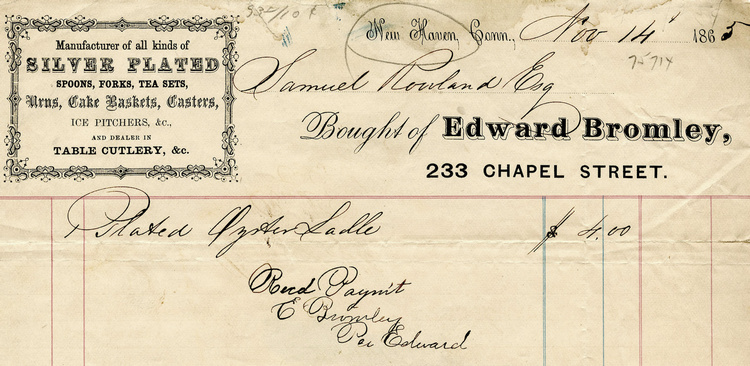 Manufacturer of all kinds of
SILVER PLATED
SPOONS, FORKS, TEA SETS,
Urns, Cake Baskets, Casters,
ICE PITCHERS, &c.,
AND DEALER IN
TABLE CUTLERY, &c.
New Haven, Conn., Nov 14 1865
75714
Samuel Rowland Esq
Bought of Edward Bromley,
233 CHAPEL STREET.
Plated Oyster Ladle $ 4.00
Recd Paymt
E Bromley
Per Edward